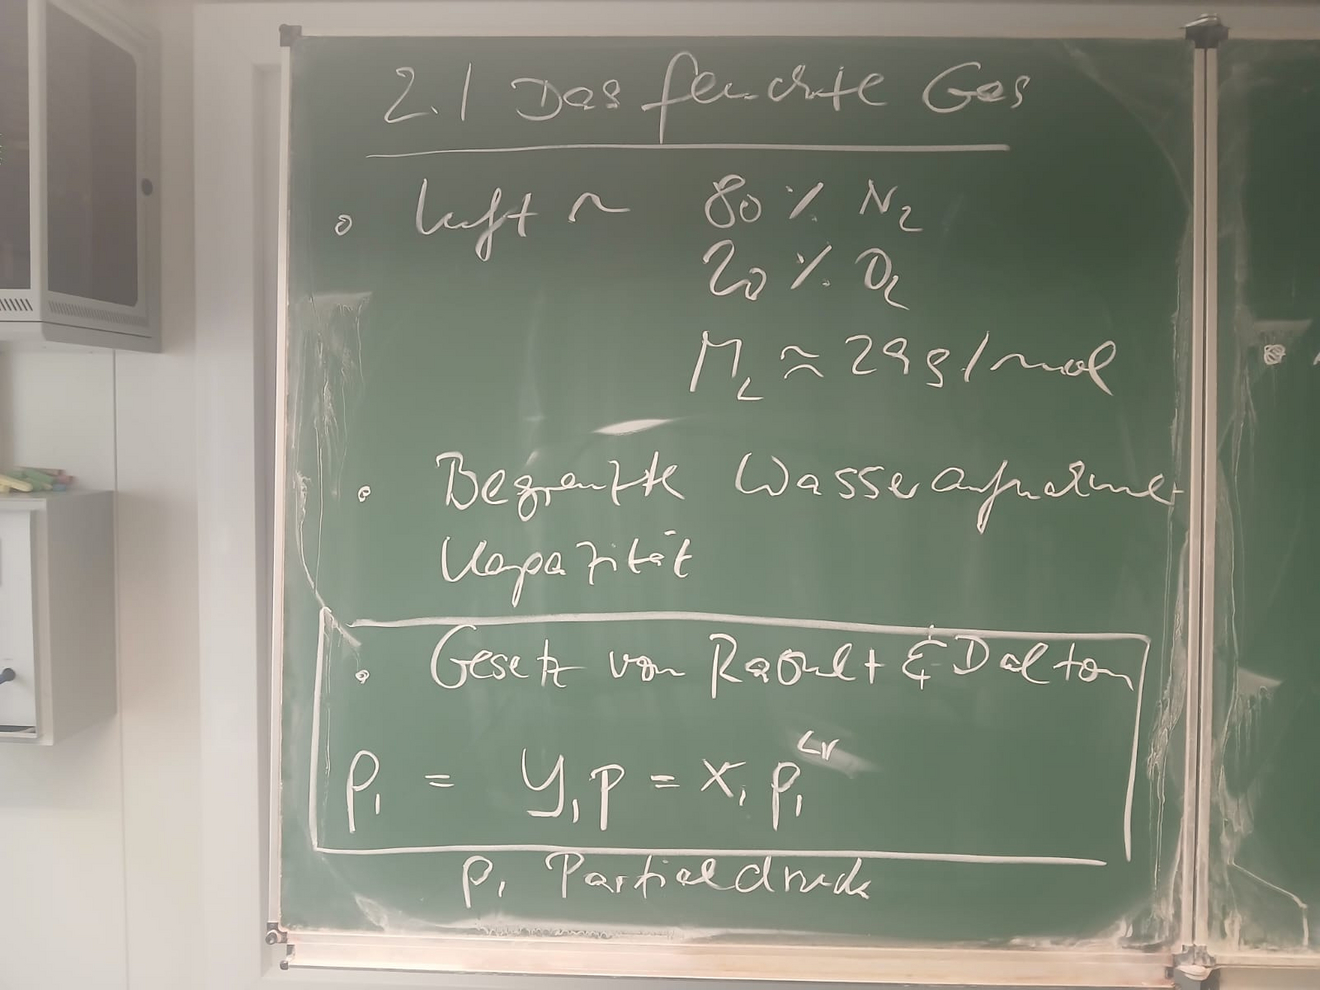 2.1 Das feuchte Gas
• Luft ~ 80 % N₂
20 % O₂
M_L ≈ 29 g/mol
• Begrenzte Wasseraufnahme-
kapazität
• Gesetz von Raoult & Dalton
p₁ = y₁p = x₁p₁^LV
p₁ Partialdruck